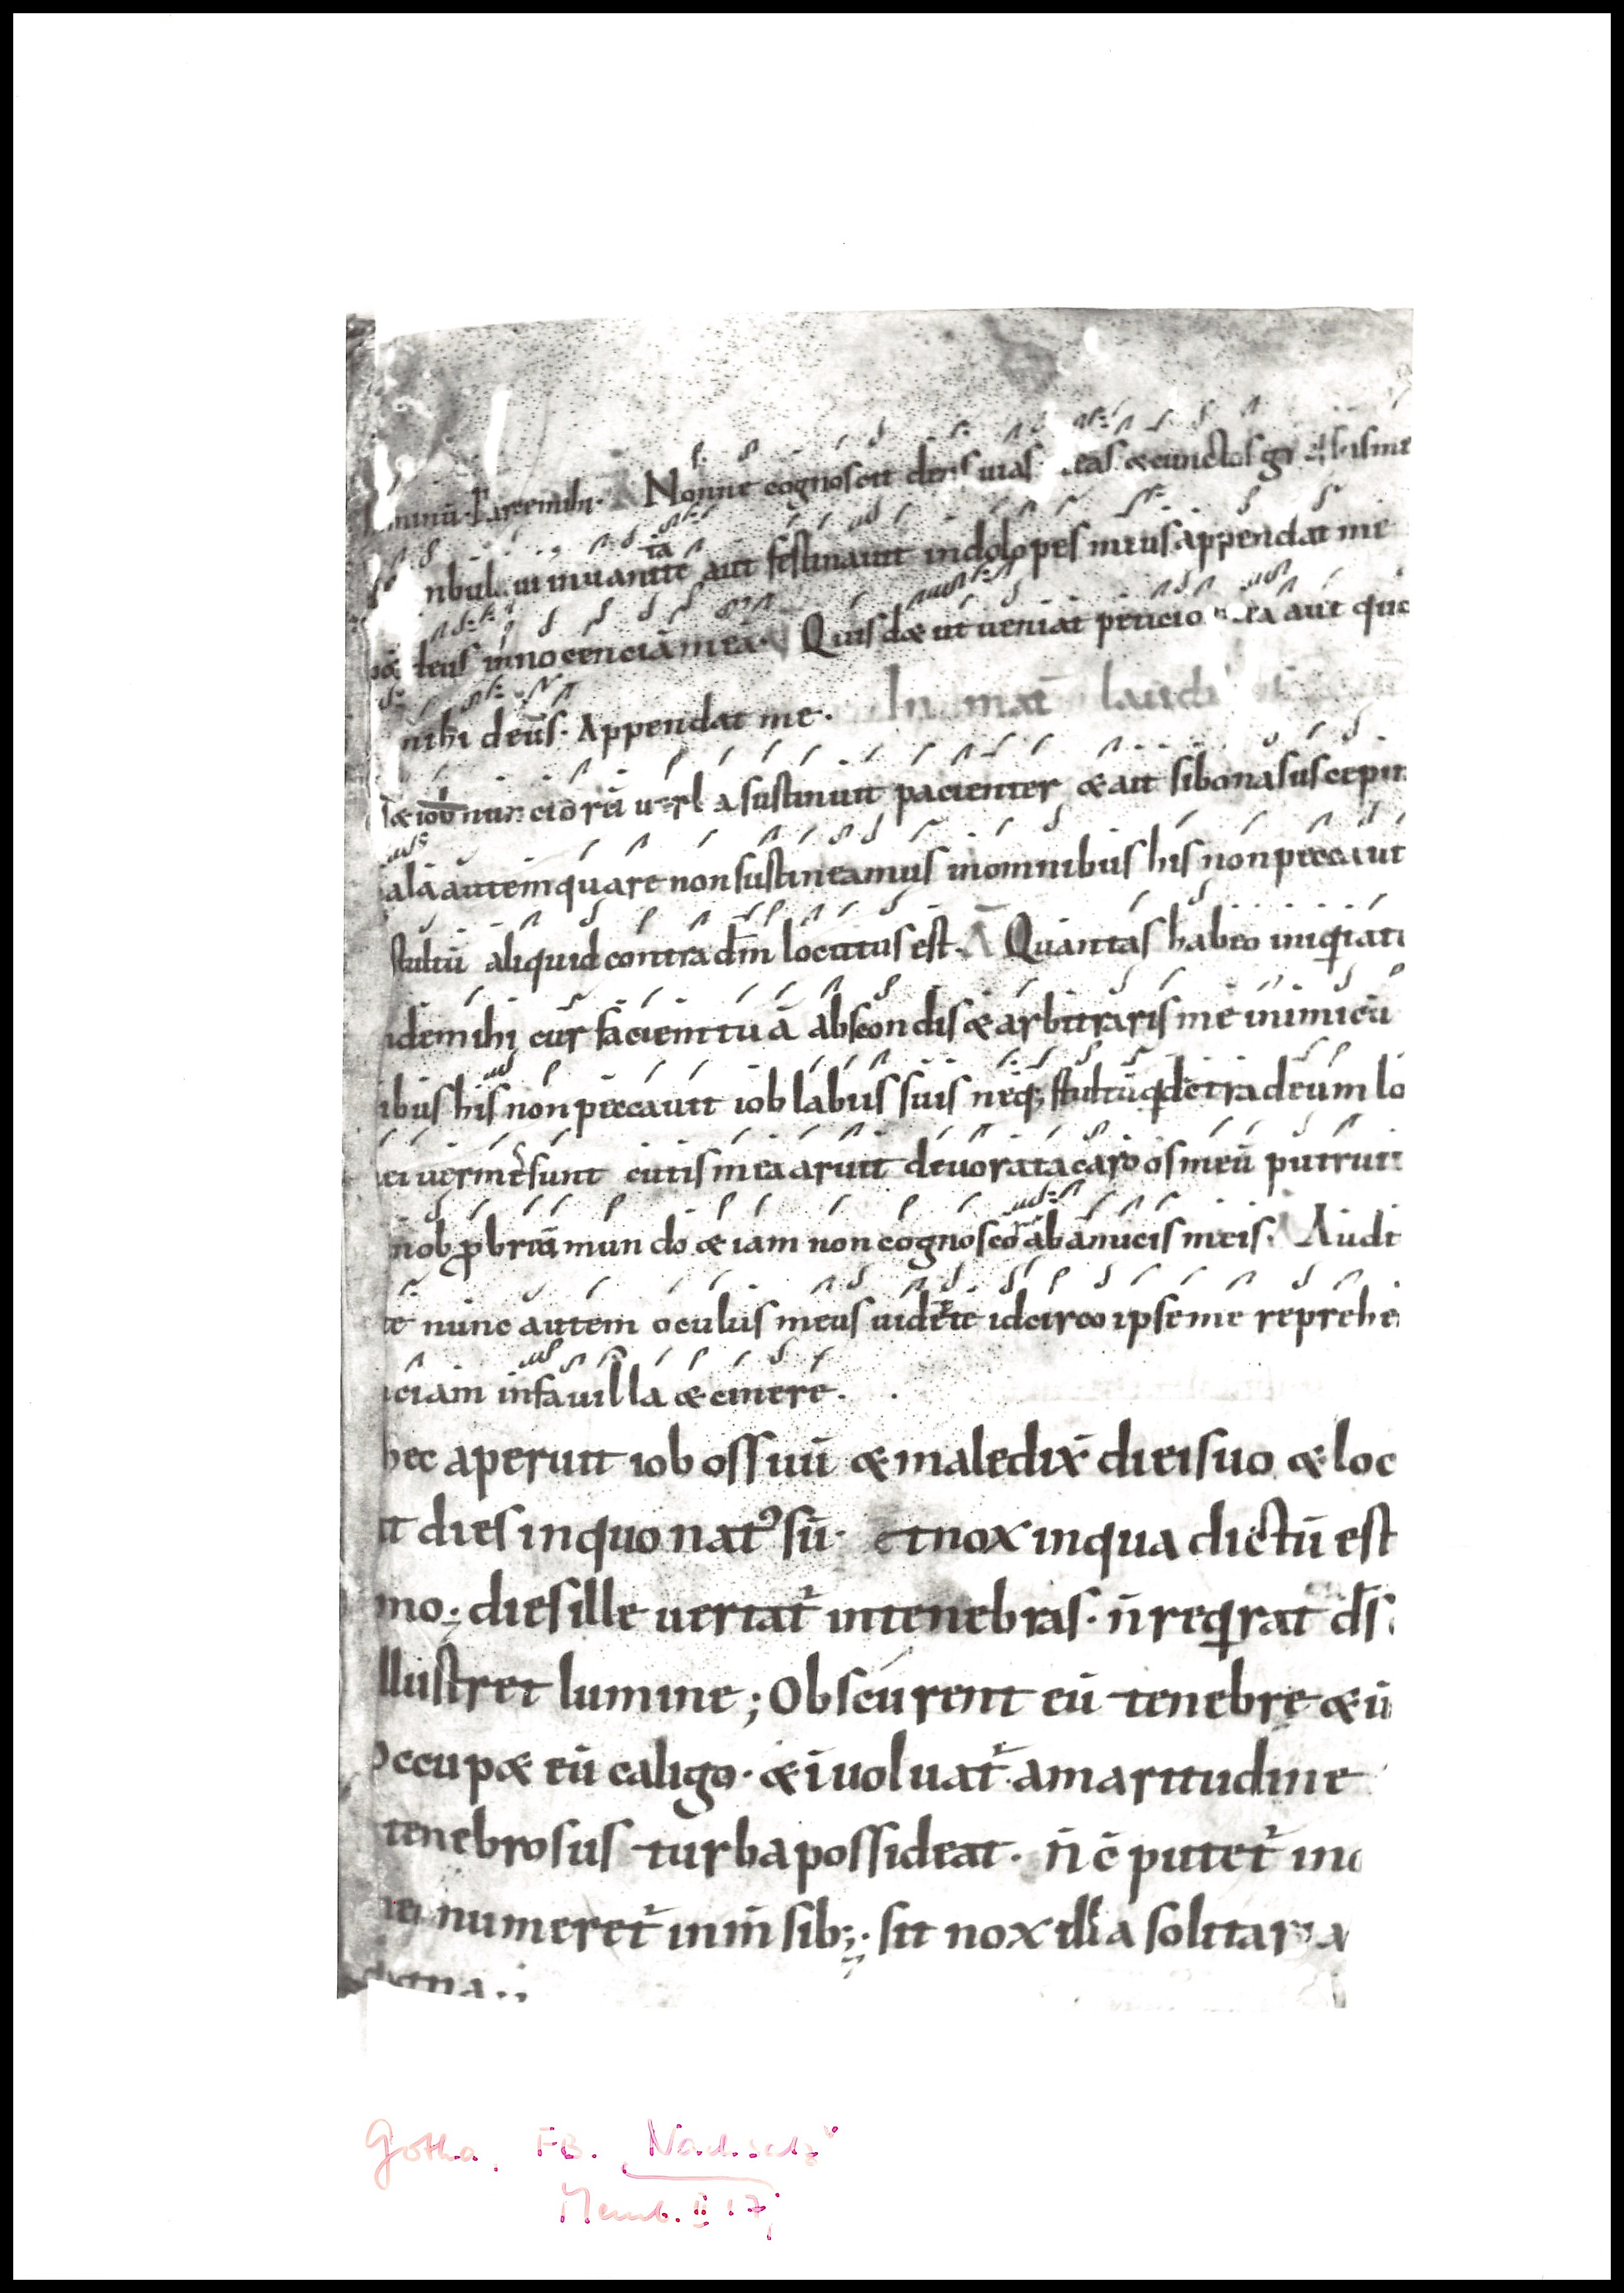 minū. Parcemihi. A Nonne cognoscit deus uias eas &cunctos gr
mbulaui inuanitate aut festinauit indolo pes meus appendat me
deus innocenciā mea. Quis d& ut ueniat peticio ea aut quo
mihi deus. Appendat me. In mat laud
& iob nunciorū uerba sustinuit pacienter & ait si bona suscepim
ala autem quare non sustineamus inomnibus his non peccauit
stultū aliquid contra dm̄ locutus est. A Quantas habeo iniqitati
idemihi cur faciem tuā abscondis & arbitraris me inimicū
ibus his non peccauit iob labiis suis neq; stultū qd cōtra deum lo
ei uermes sunt cutis mea aruit deuorata caro os meū putruit
inobprobriū mundo & iam non cognosco ab amicis meis. Audi
te nunc autem oculus meus uidet te idcirco ipse me reprehe
ciam infauilla & cinere.
hec aperuit iob os suū & maledix̄ diei suo & loc
it dies inquo nat᾽ sū. et nox inqua dictū est
mo; dies ille uertat᷑ intenebras. n̄ reqrat ds̄
llustret lumine; Obscurent eū tenebrę & ū
occup& eū caligo. & īuoluat᷑ amaritudine
tenebrosus turba possideat. n̄ cō̄putet᷑ in
nec numeret᷑ inm̄sib;. sit nox illa solitaria
digna.;
Gotha, FB. "Nachsatz"
Memb. II 17